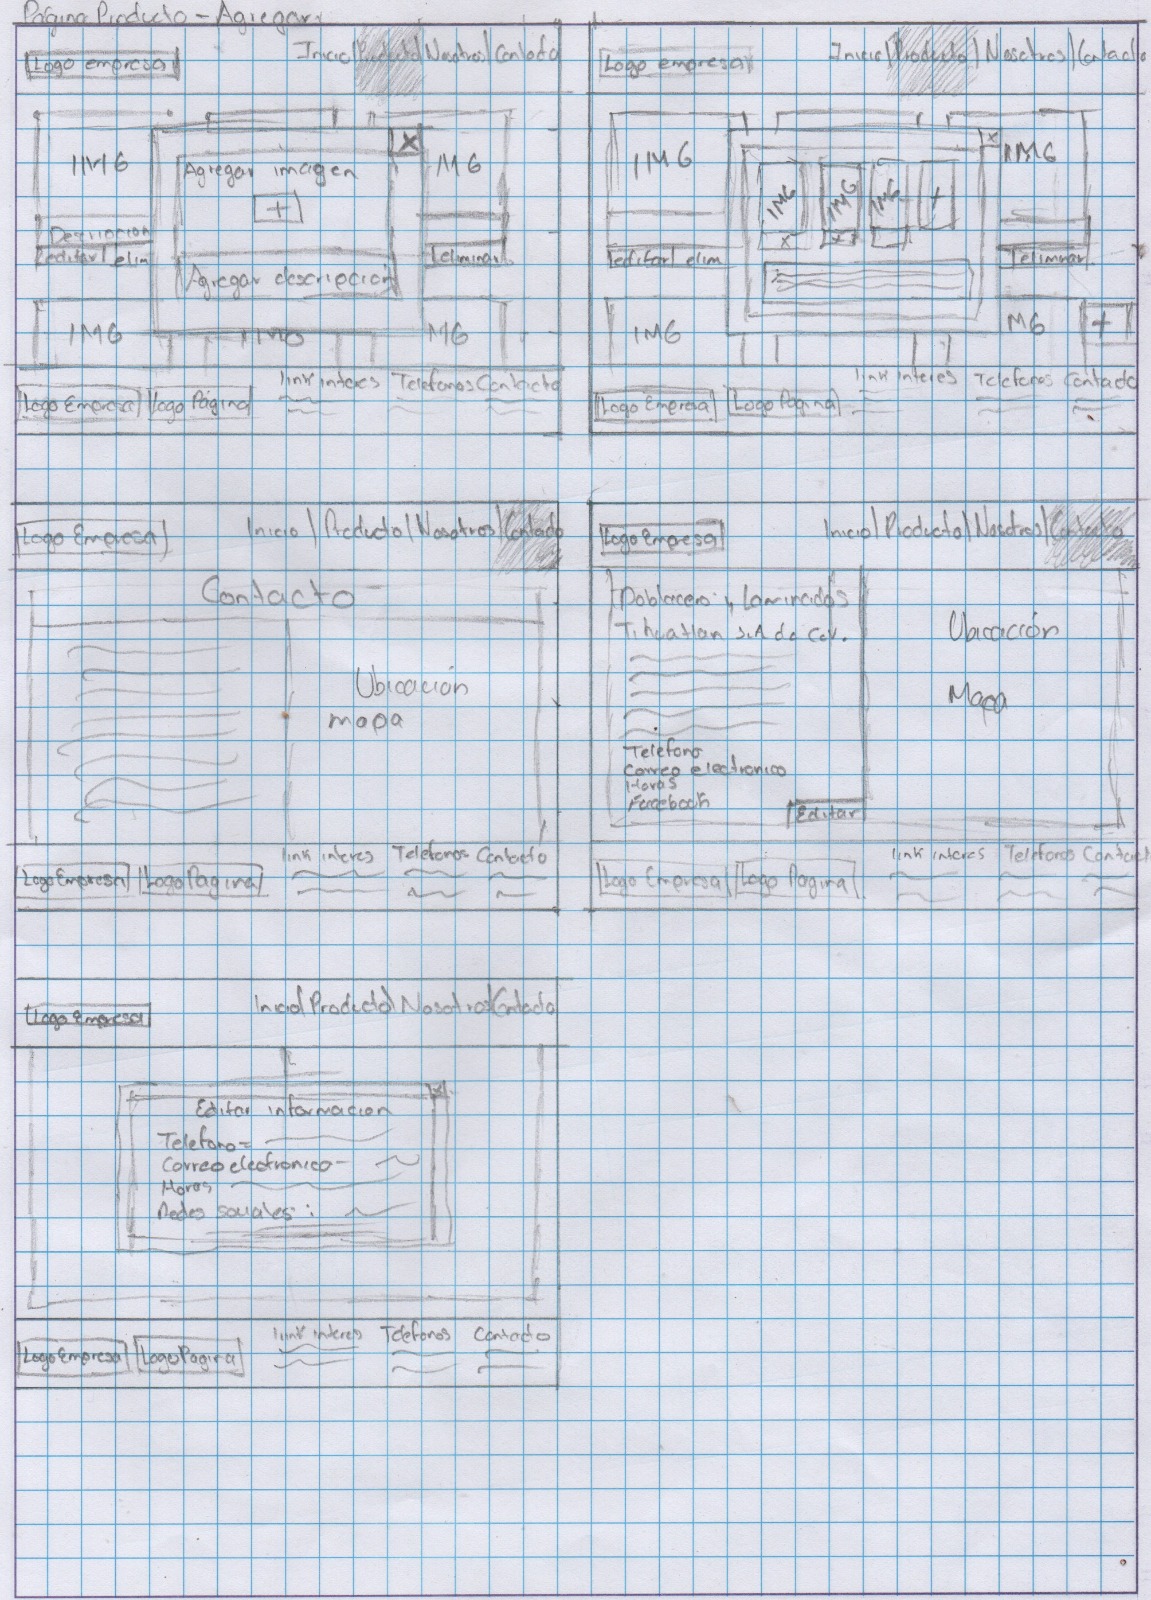 Página Producto - Agregar
Logo empresa
Inicio|Producto|Nosotros|Contacto
IMG
IMG
Agregar imagen
+
X
Descripcion
editar|elim
Eliminar
Agregar descripcion
IMG
IMG
MG
Logo Empresa
Logo Página
link interes
Telefonos
Contacto
Logo empresa
Inicio|Producto|Nosotros|Contacto
IMG
IMG
IMG
IMG
+
x
IMG
x
x
editar|elim
Eliminar
IMG
MG
+
Logo Empresa
Logo Pagina
link interes
Telefonos
Contacto
Logo Empresa
Inicio|Producto|Nosotros|Contacto
Contacto
Ubicación
mapa
Logo Empresa
Logo Pagina
link interes
Telefonos
Contacto
Logo Empresa
Inicio|Producto|Nosotros|Contacto
y Laminados
Tihuatlan S.A de C.v.
Telefono
Correo electronico
Horas
Facebook
Editar
Ubicación
Mapa
Logo Empresa
Logo Pagina
link interes
Telefonos
Contact
Logo Empresa
Inicio|Producto|Nosotros|Contacto
x
Editar informacion
Telefono=
Correo electronico-
Horas
Redes sociales:
Logo Empresa
Logo Pagina
link interes
Telefonos
Contacto